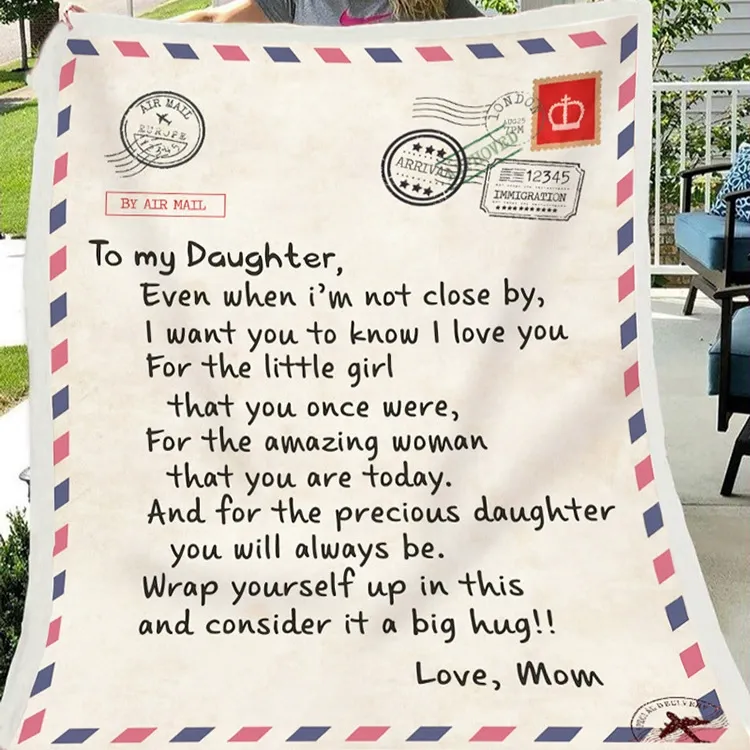 AIR MAIL
EUROPE
12345
LONDON
AUG25
7PM
ARRIVAL
12345
IMMIGRATION
BY AIR MAIL
To my Daughter,
Even when i'm not close by,
I want you to know I love you
For the little girl
that you once were,
For the amazing woman
that you are today.
And for the precious daughter
you will always be.
Wrap yourself up in this
and consider it a big hug!!
Love, Mom